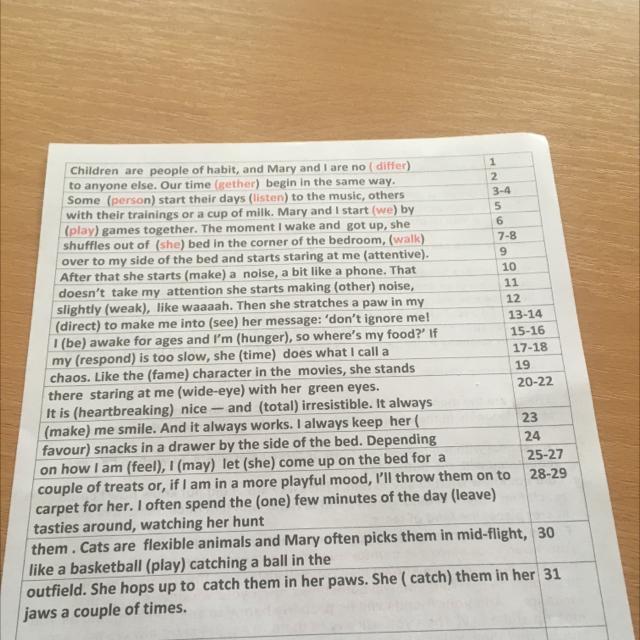 Children are people of habit, and Mary and I are no ( differ) 1
to anyone else. Our time (gether) begin in the same way. 2
Some (person) start their days (listen) to the music, others 3-4
with their trainings or a cup of milk. Mary and I start (we) by 5
(play) games together. The moment I wake and got up, she 6
shuffles out of (she) bed in the corner of the bedroom, (walk) 7-8
over to my side of the bed and starts staring at me (attentive). 9
After that she starts (make) a noise, a bit like a phone. That 10
doesn't take my attention she starts making (other) noise, 11
slightly (weak), like waaaah. Then she stretches a paw in my 12
(direct) to make me into (see) her message: 'don't ignore me! 13-14
I (be) awake for ages and I'm (hunger), so where's my food?' If 15-16
my (respond) is too slow, she (time) does what I call a 17-18
chaos. Like the (fame) character in the movies, she stands 19
there staring at me (wide-eye) with her green eyes. 20-22
It is (heartbreaking) nice — and (total) irresistible. It always
(make) me smile. And it always works. I always keep her ( 23
favour) snacks in a drawer by the side of the bed. Depending 24
on how I am (feel), I (may) let (she) come up on the bed for a 25-27
couple of treats or, if I am in a more playful mood, I'll throw them on to 28-29
carpet for her. I often spend the (one) few minutes of the day (leave)
tasties around, watching her hunt
them . Cats are flexible animals and Mary often picks them in mid-flight, 30
like a basketball (play) catching a ball in the
outfield. She hops up to catch them in her paws. She ( catch) them in her 31
jaws a couple of times.